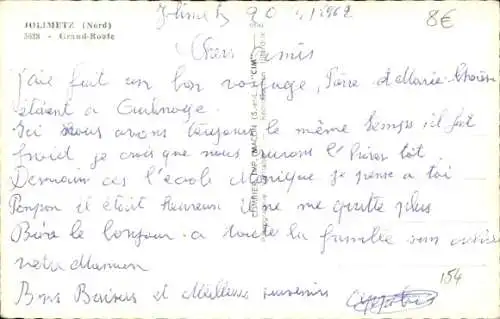 JOLIMETZ (Nord)
5628 - Grand-Route
Jolimetz
8€
Chers Amis
J'aie fait un bon voyage, Pière et Marie-Thérèse
étaient a Aulnoye.
Ici nous avons toujours le même temps il fait
froid je crois que nous aurons l'hiver tôt
Demain ces l'école Monique je pense a toi
Ponpon il était heureux il ne me quitte plus
Bien le bonjour a toute la famille
votre Maman
Bons Baisers et Meilleurs souvenirs
154
COMBIER IMP. MACON (S.-et-L.) "CIM"